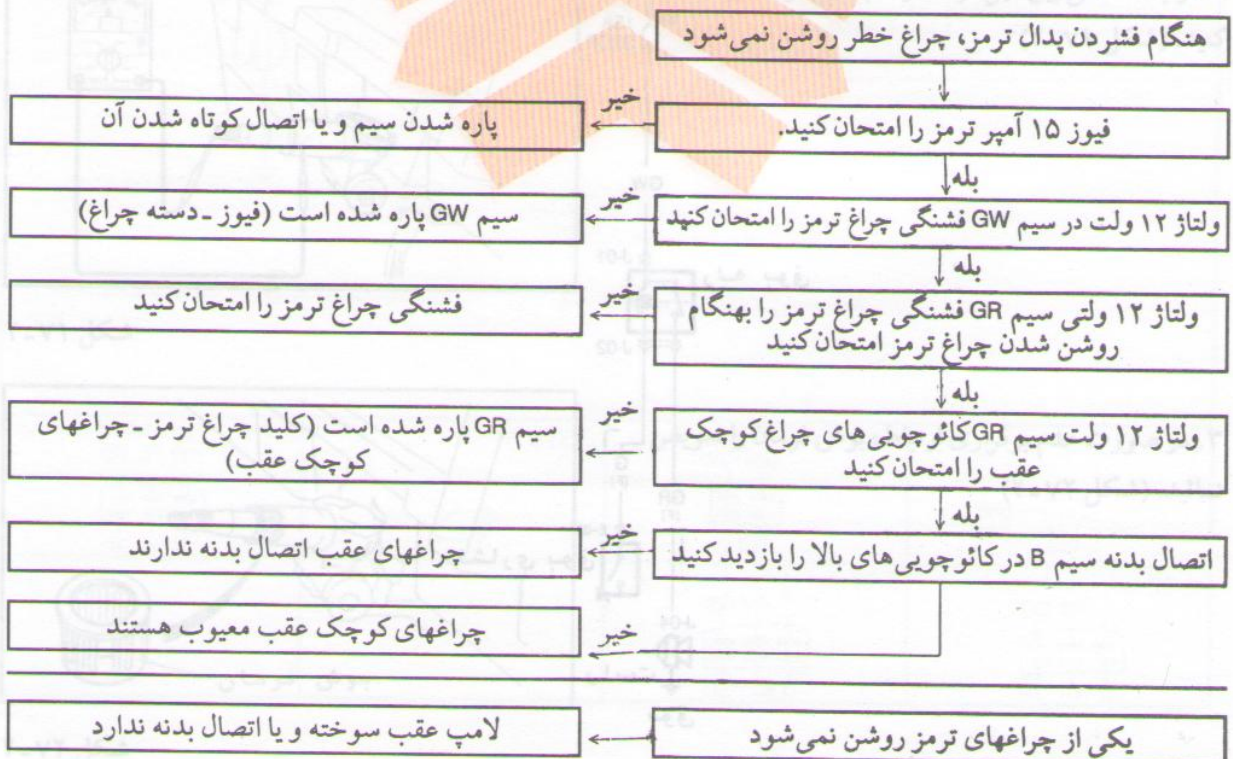 هنگام فشردن پدال ترمز، چراغ خطر روشن نمی‌شود
فیوز ۱۵ آمپر ترمز را امتحان کنید.
خیر
پاره شدن سیم و یا اتصال کوتاه شدن آن
بله
ولتاژ ۱۲ ولت در سیم GW فشنگی چراغ ترمز را امتحان کنید
خیر
سیم GW پاره شده است (فیوز - دسته چراغ)
بله
ولتاژ ۱۲ ولتی سیم GR فشنگی چراغ ترمز را بهنگام
روشن شدن چراغ ترمز امتحان کنید
خیر
فشنگی چراغ ترمز را امتحان کنید
بله
ولتاژ ۱۲ ولت سیم GR کائوچویی‌های چراغ کوچک
عقب را امتحان کنید
خیر
سیم GR پاره شده است (کلید چراغ ترمز - چراغهای
کوچک عقب)
بله
اتصال بدنه سیم B در کائوچویی‌های بالا را بازدید کنید
خیر
چراغهای عقب اتصال بدنه ندارند
خیر
چراغهای کوچک عقب معیوب هستند
یکی از چراغهای ترمز روشن نمی‌شود
لامپ عقب سوخته و یا اتصال بدنه ندارد